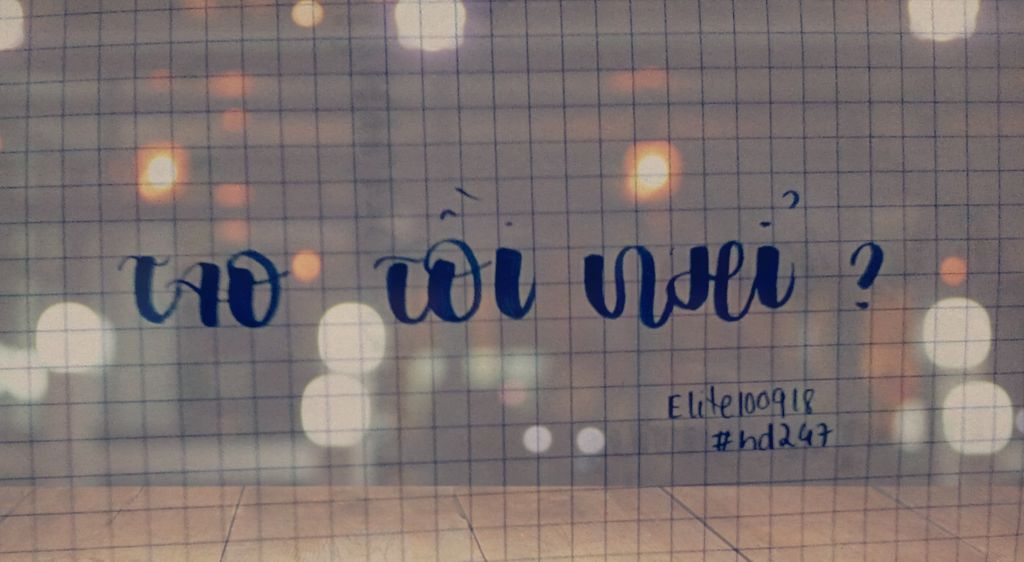 TAO TỒI NHỈ ?
Elite100918
#hd247